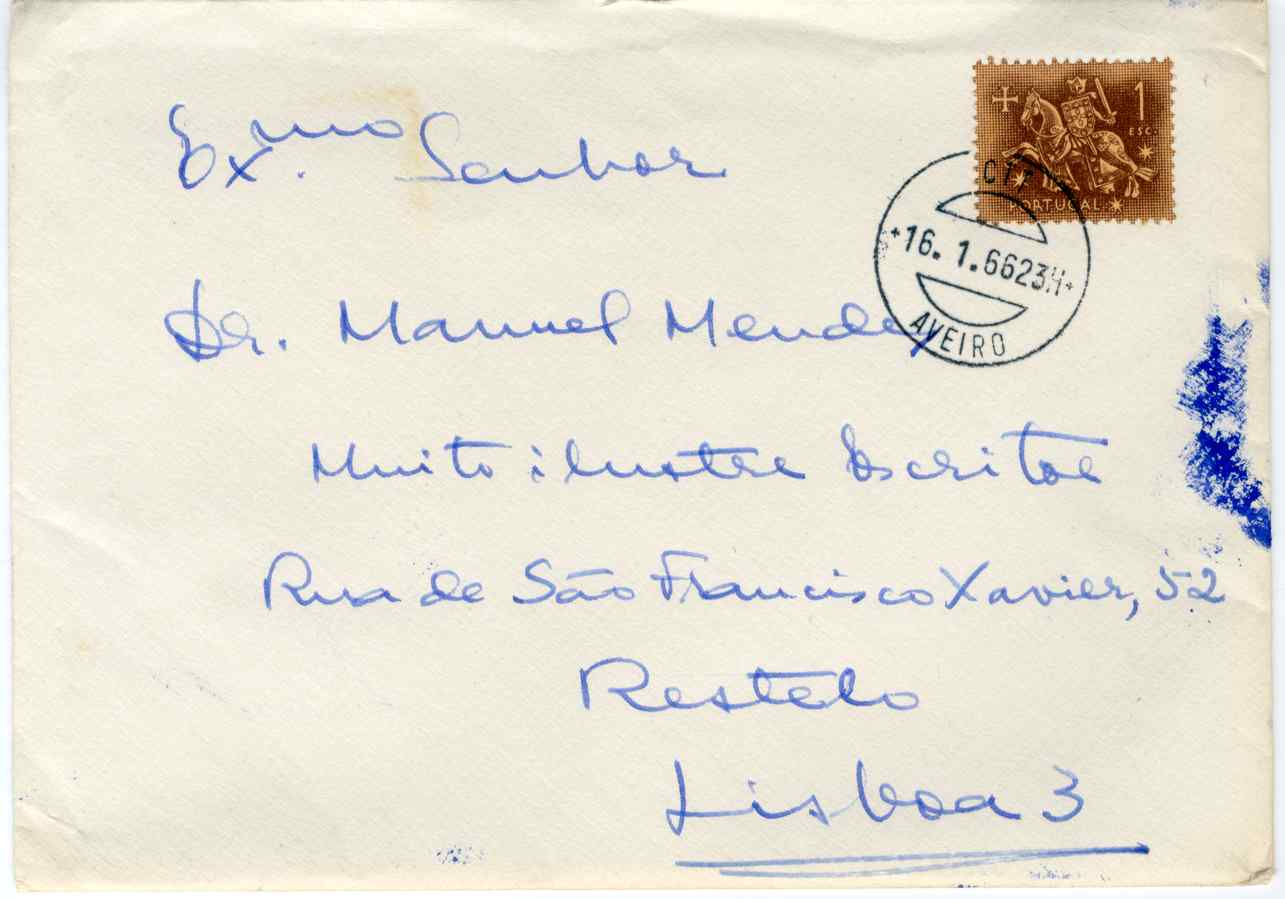 Ex.mo Senhor
1
ESC.
PORTUGAL
CTT
16. 1.66 23H
AVEIRO
Dr. Manuel Mendes
Muito ilustre Escritor
Rua de São Francisco Xavier, 52
Restelo
Lisboa 3